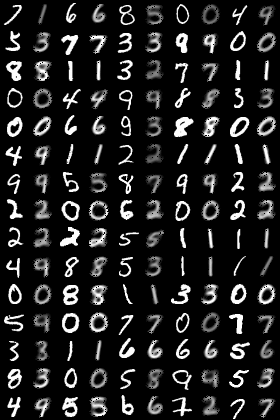 7 1 6 6 8 5 0 0 4 9
5 3 7 7 3 3 9 9 0 0
8 8 1 1 3 2 7 7 1 1
0 0 4 4 9 9 8 8 3 3
0 0 6 6 9 3 8 8 0 0
4 9 1 1 2 2 1 1 1 1
9 9 5 5 8 7 9 9 2 2
2 2 0 0 6 2 0 0 2 2
2 2 2 2 5 5 1 1 1 1
4 9 8 8 5 3 1 1 1 1
0 0 8 8 1 1 3 3 0 0
5 9 0 0 7 7 0 0 7 7
3 8 1 1 6 6 6 6 5 6
8 3 0 0 5 8 9 9 5 3
4 9 5 5 6 6 7 2 7 7